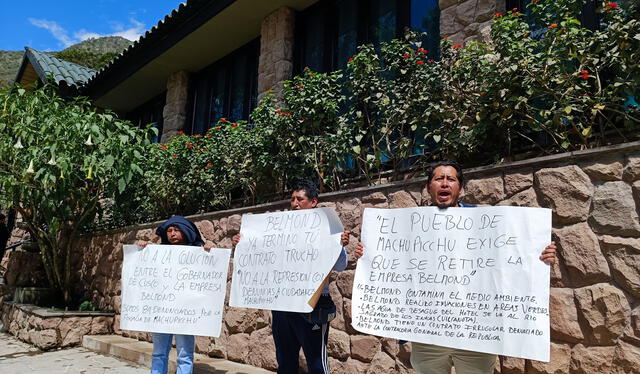 NO A LA COLUCIÓN
ENTRE EL GOBERNADOR
DE CUSCO Y LA EMPRESA
BELMOND
SOMOS 89 DENUNCIADOS POR LA
GAVILLA DE MACHUPICCHU
BELMOND
YA TERMINO TU
CONTRATO TRUCHO
"NO A LA REPRESIÓN CON
DENUNCIAS A CIUDADANOS
MACHUPICCHU
"EL PUEBLO DE
MACHUPICCHU EXIGE
QUE SE RETIRE LA
EMPRESA BELMOND"
BELMOND CONTAMINA EL MEDIO AMBIENTE.
BELMOND REALIZO INVACIONES EN AREAS VERDES
LAS AGUA DE DESAGUE DEL HOTEL SE VA AL RIO
SAGRADO DE LOS INCAS (VILCANOTA).
BELMOND TIENE UN CONTRATO IRREGULAR DENUNCIADO
ANTE LA CONTRALORIA GENERAL DE LA REPUBLICA.